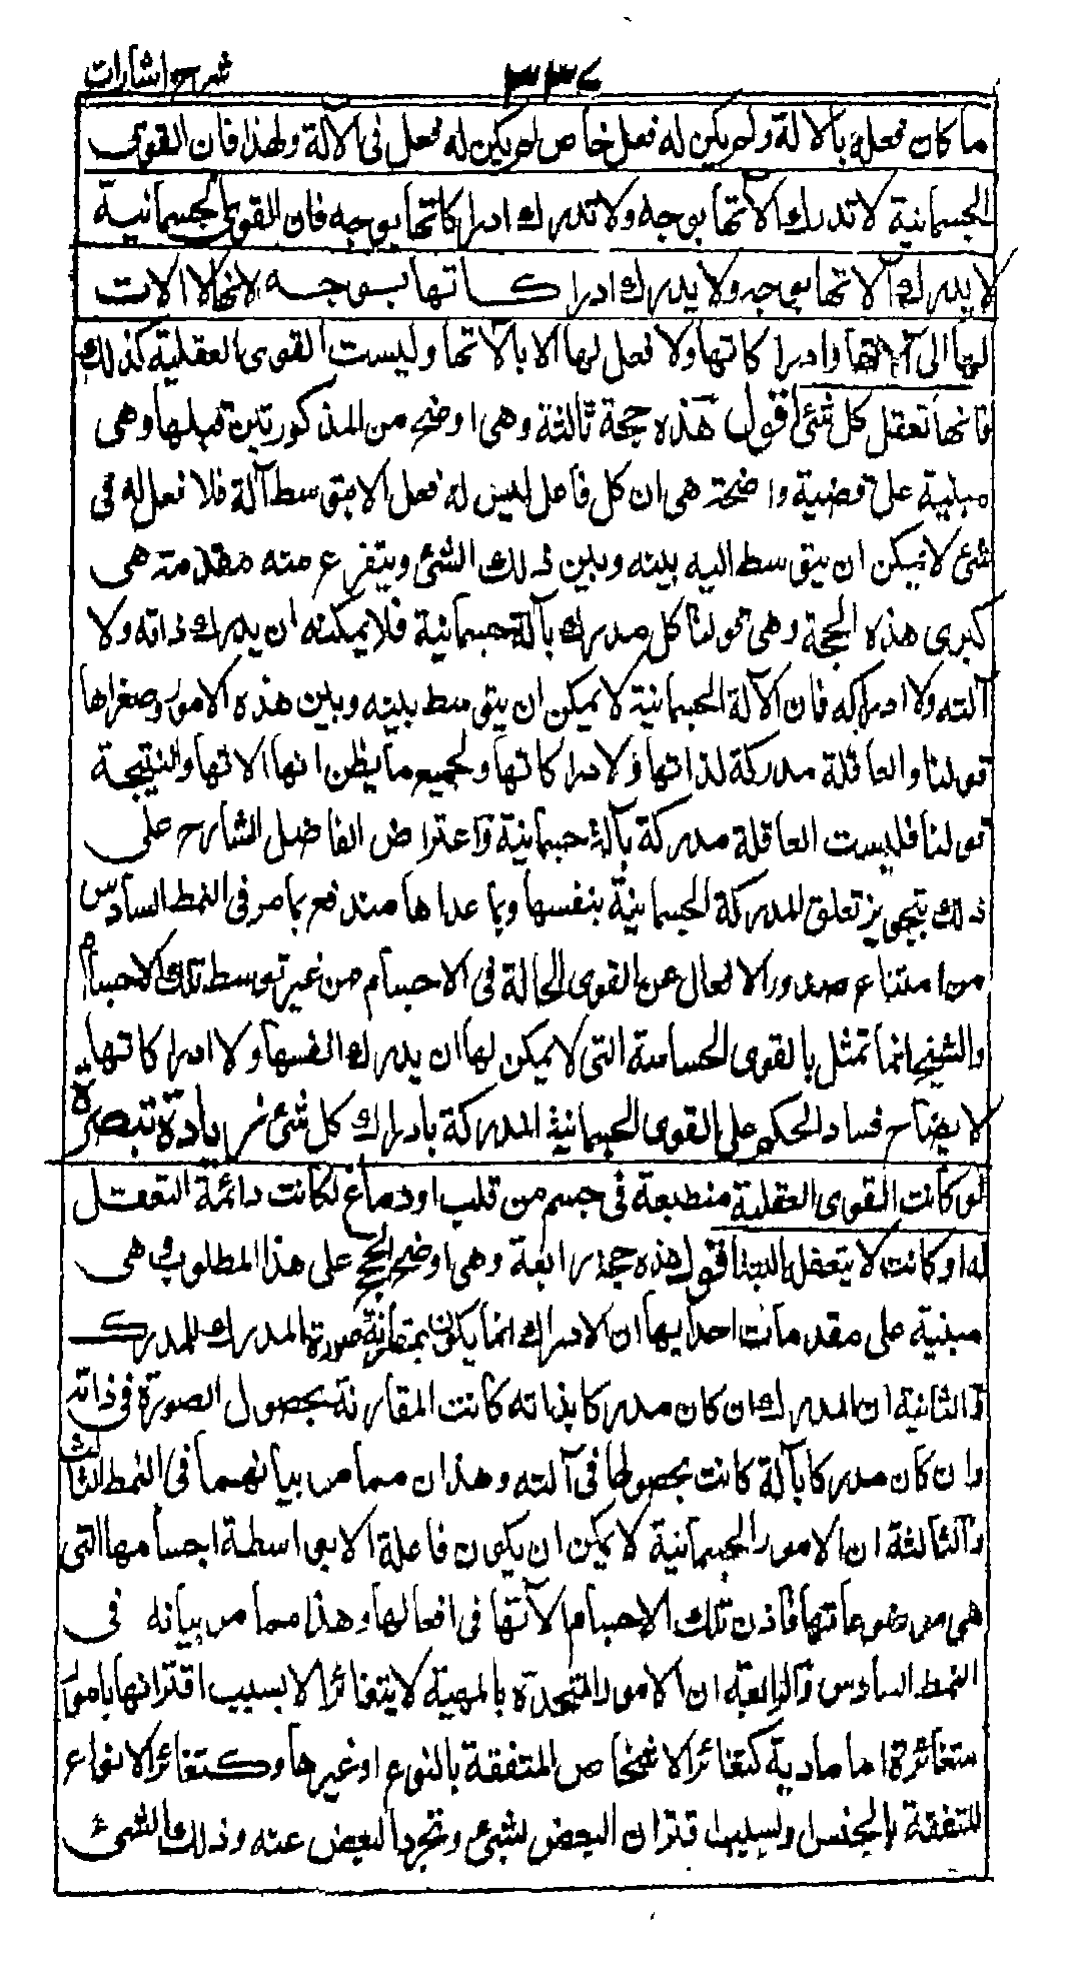 شرح اشارات
٣٣٧
ما كان فعله بالالة ولم يكن له فعل خاص لم يكن له فعل فى الآلة ولهذا فان القوى
الجسمانية لا تدرك آلآتها بوجه ولا تدرك ادراكاتها بوجه فان القوى الجسمانية
لا يدرك آلاتها بوجه ولا يدرك ادراكاتها بوجه لانها لا الات
لها الى آلاتها وادراكاتها ولا فعل لها الا بالآتها وليست القوى العقلية كذلك
فانها تعقل كل شئ اقول هذه حجة ثالثة وهى اوضح من المذكورتين قبلها وهى
مبنية على قضية واضحة هى ان كل فاعل ليس له فعل الا بتوسط آلة فلا فعل له فى
شئ لا يمكن ان يتوسط اليه بينه وبين ذلك الشئ ويتفرع منه مقدمة هى
كبرى هذه الحجة وهى قولنا كل مدرك بآلة جسمانية فلا يمكنه ان يدرك ذاته ولا
آلته ولا ادراكه فان الآلة الجسمانية لا يمكن ان يتوسط بينه وبين هذه الامور وصغراها
قولنا والعاقلة مدركة لذاتها ولادراكاتها ولجميع ما يظن انها الاتها والنتيجة
قولنا فليست العاقلة مدركة بآلة جسمانية واعتراض الفاضل الشارح على
ذلك بتجويز تعلق المدركة الجسمانية بنفسها وبما عداها مندفع بما مر فى النمط السادس
من امتناع صدور الافعال عن القوى الحالة فى الاجسام من غير توسط تلك الاجسام
والشيخ انما تمثل بالقوى الحساسة التى لا يمكن لها ان يدرك انفسها ولا ادراكاتها
لايضاح فساد الحكم على القوى الجسمانية المدركة بادراك كل شئ زيادة تبصرة
لو كانت القوى العقلية منطبعة فى جسم من قلب او دماغ لكانت دائمة التعقل
له او كانت لا يتعقل البتة اقول هذه حجة رابعة وهى اوضح الحجج على هذا المطلوب وهى
مبنية على مقدمات احديها ان الادراك انما يكون بمقارنة صورة المدرك للمدرك
والثانية ان المدرك ان كان مدركا بذاته كانت المقارنة بحصول الصورة فى ذاته
وان كان مدركا بآلة كانت بحصولها فى آلته وهذان مما مر بيانهما فى النمط الثالث
والثالثة ان الامور الجسمانية لا يمكن ان يكون فاعلة الا بواسطة اجسامها التى
هى موضوعاتها فاذن تلك الاجسام آلآتها فى افعالها وهذا مما مر بيانه فى
النمط السادس والرابعة ان الامور المتحدة بالمهية لا يتغائر الا بسبب اقترانها بامور
متغائرة اما مادية كتغائر الاشخاص المتفقة بالنوع او غيرها وكتغائر الانواع
المتفقة بالجنس او بسبب اقتران البعض بشئ وتجرد البعض عنه وذلك الشئ